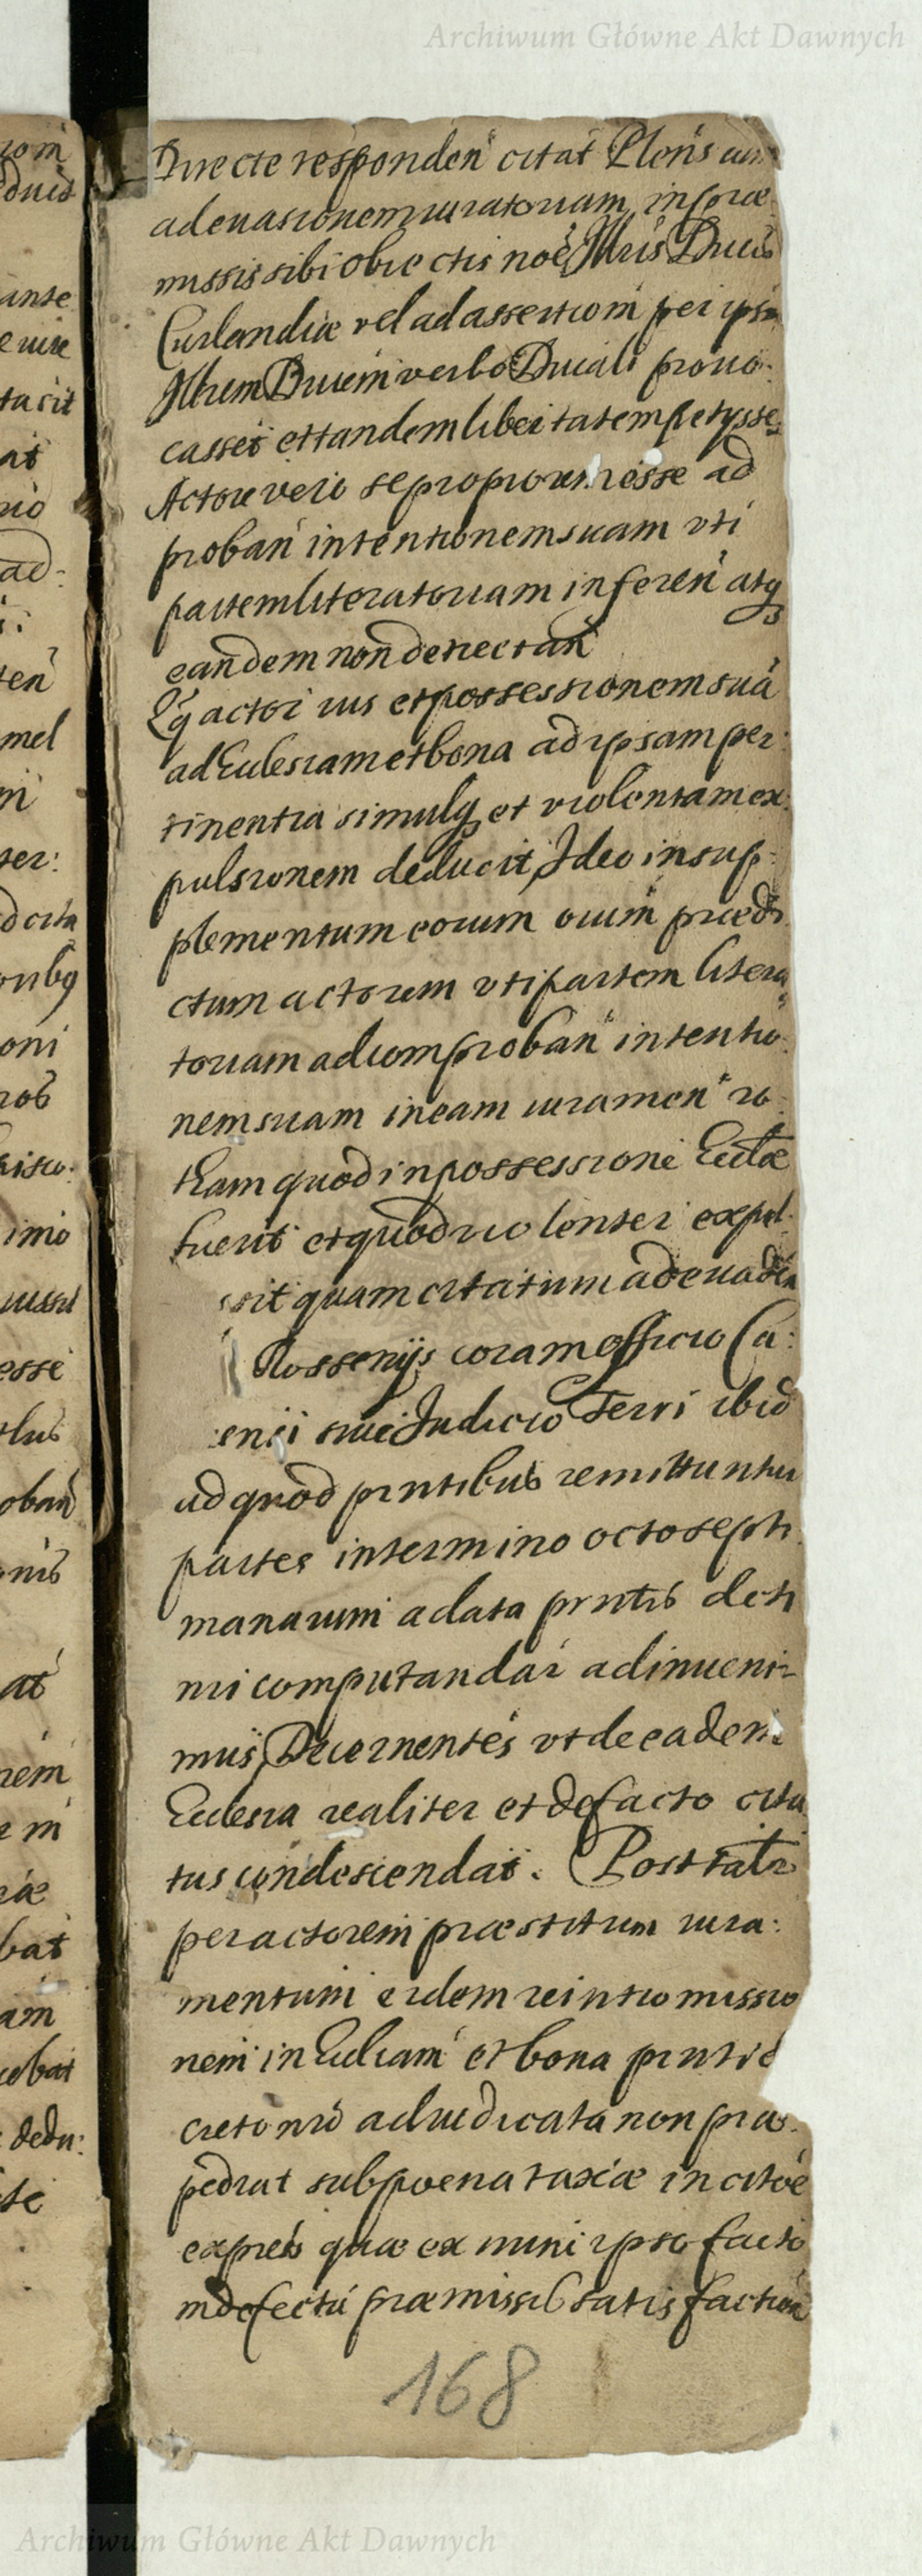 Archiwum Główne Akt Dawnych
Directe responden citat Plens cum
ad evasionem iuratoriam in præ
missis sibi obiectis noe Illris Ducis
Curlandiæ vel ad assertiom per ipsm
Illrem Ducem verbo Ducali prouo:
casset et tandem libertatem petysse
Actore vero se propiorem esse ad
proban intentionem suam vti
partem literatoriam inferen atq
eandem non detrectan
Qq actor ius et possessionem suã
ad Eclesiam et bona ad ipsam per:
tinentia simulq et violentam ex:
pulsionem deducit, Ideo in sup:
plementum eorum ouim prædi
ctum actorem vti partem litera
toriam ad comproban intentio:
nem suam in eam iuramen ro
tham quod in possessione Eclæ
fuerit et quod violenter expul
sit quam citatum ad euaden
Rossenijs coram officio Ca:
ensi siue Judicio Terri ibid
ad quod prntibus remittuntur
partes in termino octo septi
manarum a data prntis decr
mi computandar adinueni
mus Decernentes vt de eadem
Eclesia realiter et de facto cita
tus condescendat. Post talr
per actorem præstitum iura:
mentum eidem reintromissio
nem in Ecliam et bona prnti de
creto nro adiudicata non præ
pediat sub poena taxæ in citoe
expres quæ ex nunc ipso facto
in defectu præmissis satisfaction
168
iom
ante
e uire
tarit
at
rio
ad:
ten
mel
ter:
d cita
onibq
oni
rob
imo
iussu
esse
oban
at
rem
e in
bat
am
cebat
dedu:
Archiwum Główne Akt Dawnych